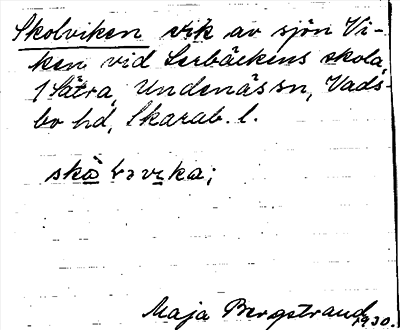 Skolviken vik av sjön Vi-
ken vid Lerbäckens skola,
1 Sätra, Undenäs sn, Vads-
bo hd, Skarab. l.
Maja Bergstrand 1930.